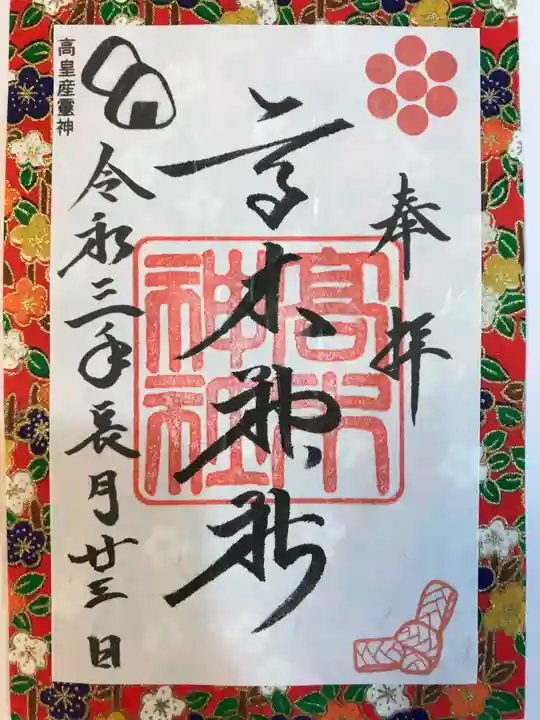 奉拝
高木神社
高木神社
令和三年長月廿三日
高皇産霊神